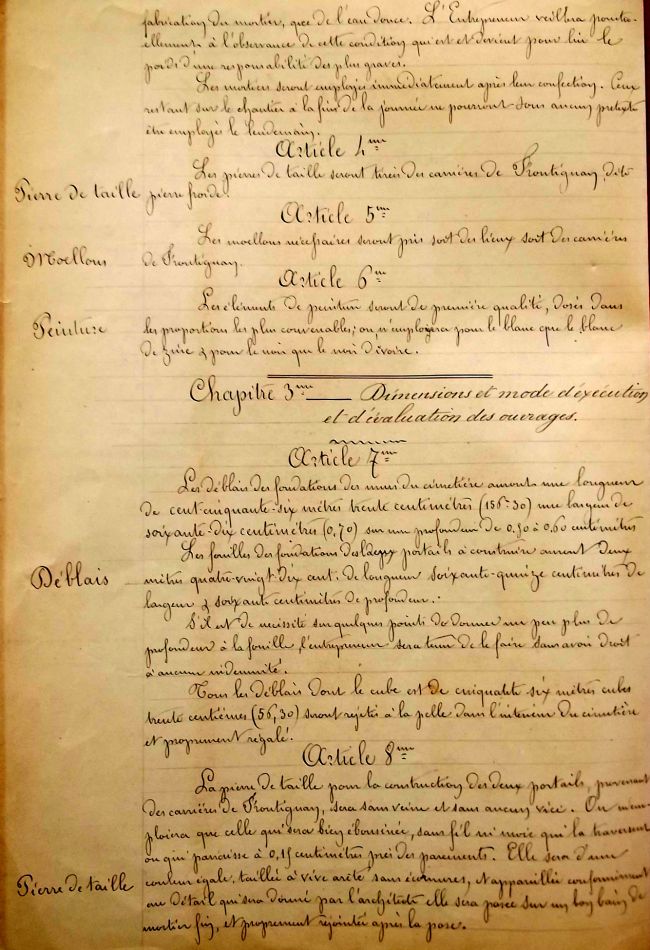 fabrication du mortier, que de l'eau douce. L'Entrepreneur veillera ponctu-
ellement à l'observance de cette condition qui est et devient pour lui le
poids d'une responsabilité des plus graves.
Les mortiers seront employés immédiatement après leur confection. Ceux
restant sur le chantier à la fin de la journée ne pourront sous aucun prétexte
être employés le lendemain.
Article 4me
Les pierres de taille seront tirées des carrières de Frontignan, dite
Pierre de taille pierre froide.
Article 5me
Les moellons nécessaires seront pris soit des lieux soit des carrières
Moellons de Frontignan.
Article 6me
Les éléments de peinture seront de première qualité, dosés dans
Peinture les proportions les plus convenables; on n'emploiera pour le blanc que le blanc
de zinc & pour le noir que le noir d'ivoire.
Chapitre 3me — Dimensions et mode d'exécution
et d'évaluation des ouvrages.
Article 7me
Les déblais des fondations des murs du cimetière auront une longueur
de cent-cinquante-six mètres trente centimètres (156m30) une largeur de
soixante-dix centimètres (0,70) sur une profondeur de 0,50 à 0,60 centimètres
Les fouilles des fondations des portails à construire auront deux
Déblais mètres quatre-vingt-dix cent. de longueur soixante-quinze centimètres de
largeur & soixante centimètres de profondeur.
S'il est de nécessité sur quelques points de donner un peu plus de
profondeur à la fouille, l'entrepreneur sera tenu de le faire sans avoir droit
à aucune indemnité.
Tous les déblais dont le cube est de cinquante six mètres cubes
trente centièmes (56,30) seront rejetés à la pelle dans l'intérieur du cimetière
et proprement régalé.
Article 8me
La pierre de taille pour la construction des deux portails, provenant
des carrières de Frontignan, sera sans veine et sans aucun vice. On n'em-
ploiera que celle qui sera bien ébousinée, sans fil ni moie qui la traversent
ou qui paraisse à 0,15 centimètres près des parements. Elle sera d'une
couleur égale, taillée à vive arête sans écornures, et appareillée conformément
Pierre de taille au détail qui sera donné par l'architecte elle sera posée sur un bon bain de
mortier fin, et proprement rejointée après la pose.